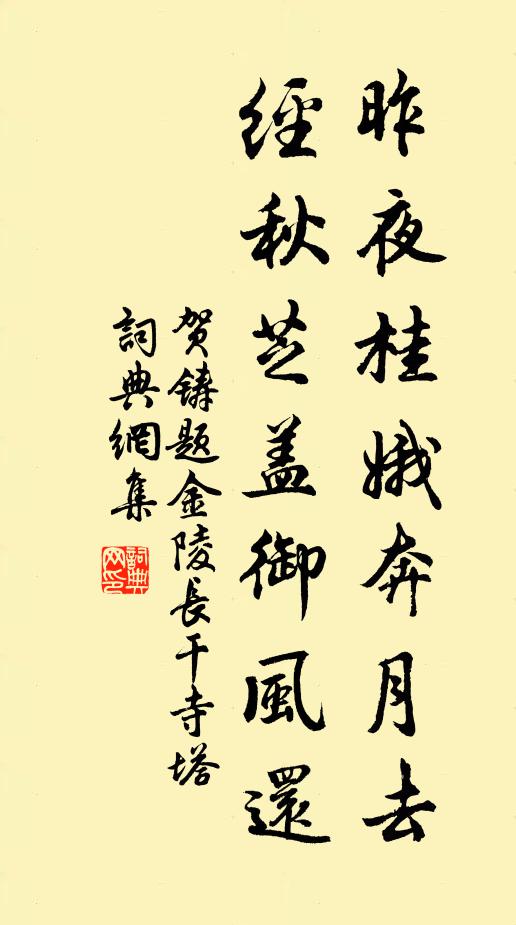 昨夜桂娥奔月去
經秋芝盖御風還
贺鑄题金陵長干寺塔
詞典網集
詞典網印